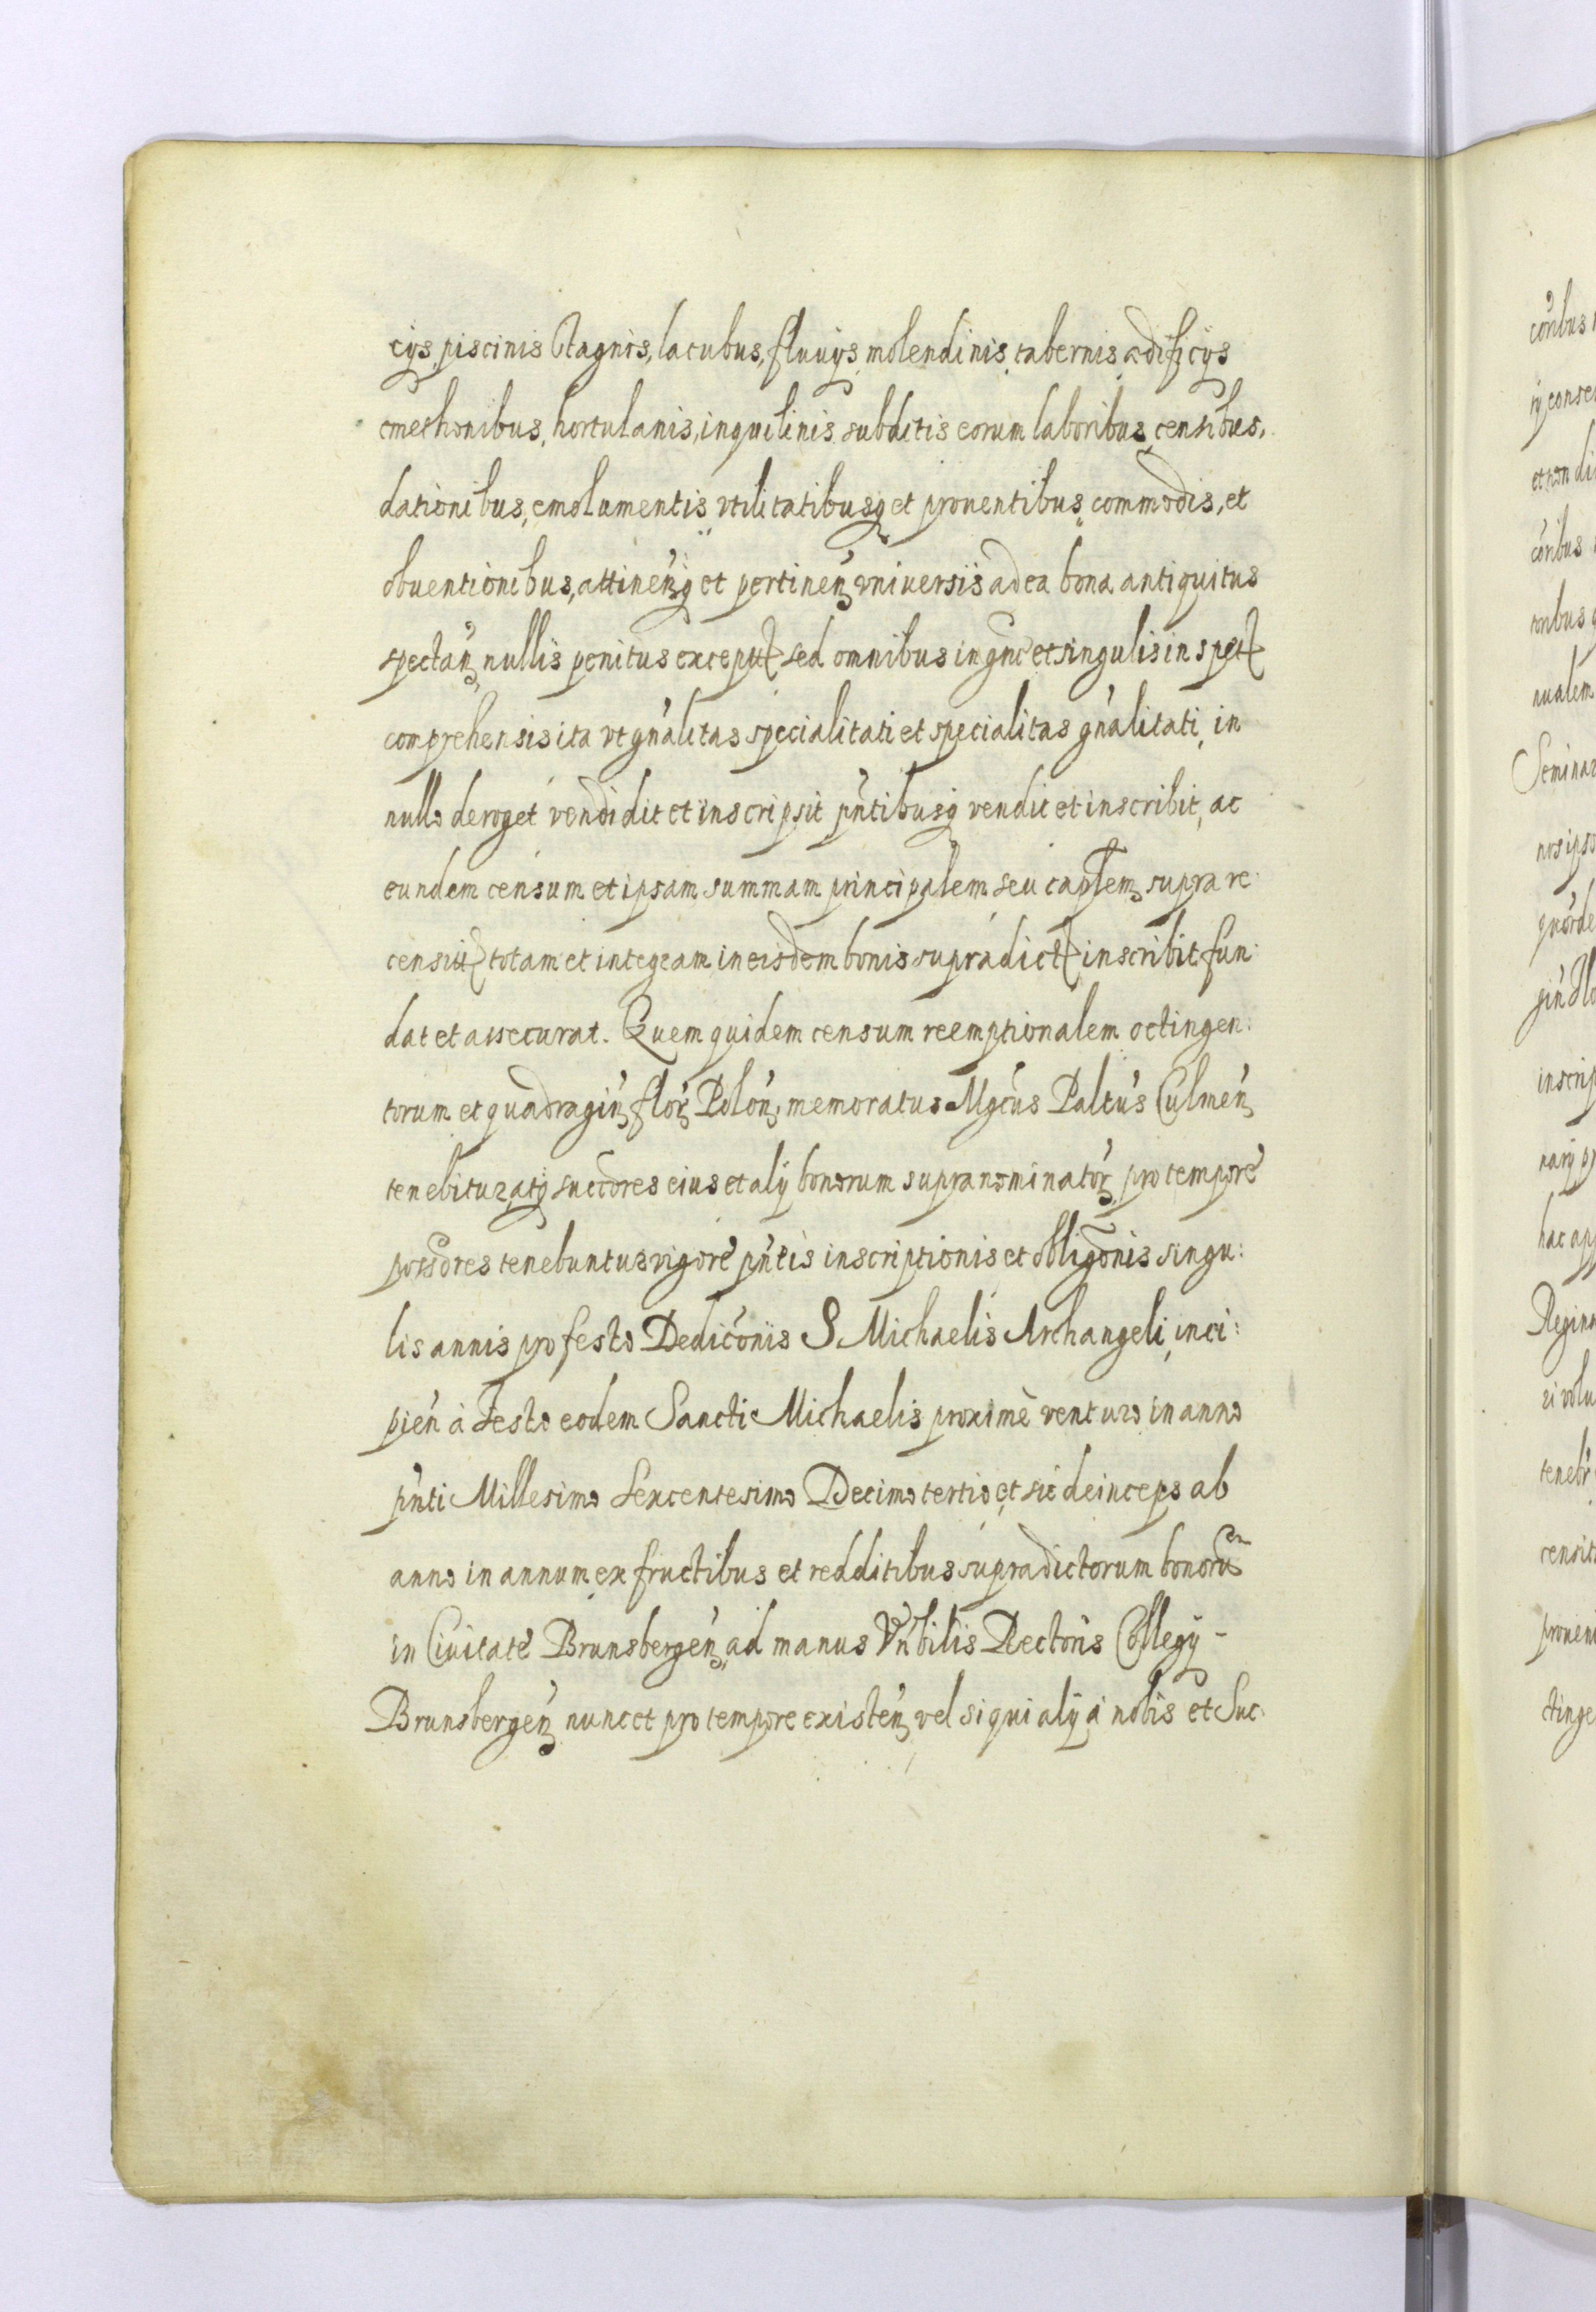 cijs, piscinis stagnis, lacubus, fluuijs, molendinis, tabernis, ædificijs
cmethonibus, hortulanis, inquilinis, subditis eorum laboribus, censibus,
dationibus, emolumentis, vtilitatibusq; et prouentibus, commodis, et
obuentionibus, attineñ q; et pertineñ vniuersis ad ea bona antiquitus
spectañ, nullis penitus except sed omnibus in gñe et singulis in spe
comprehensis ita vt gñalitas specialitati et specialitas gñalitati, in
nullo deroget vendidit et inscripsit pñtibusq; vendit et inscribit, ac
eundem censum et ipsam summam principalem seu caplem supra re:
censit totam et integram in eisdem bonis supradict inscribit fun:
dat et assecurat. Quem quidem censum reemptionalem octingen:
torum et quadragiñ flor Poloñ, memoratus Mgcus Paltus Culmeñ
tenebitur, atq; succores eius et alij bonorum supranominator, pro tempore
possores tenebuntur vigore pñtis inscriptionis et obligonis singu:
lis annis pro festo Dedicoñis S Michaelis Archangeli, inci:
pień à Festo eodem Sancti Michaelis proximè venturo in anno
pñti Millesimo Sexcentesimo Decimo tertio, et sic deinceps ab
anno in annum, ex fructibus et redditibus supradictorum bonorū
in Ciuitate Brunsbergeñ, ad manus Vñbilis Rectoris Collegij -
Brunsbergeñ nunc et pro tempore existeñ, vel si qui alij à nobis et Suc: